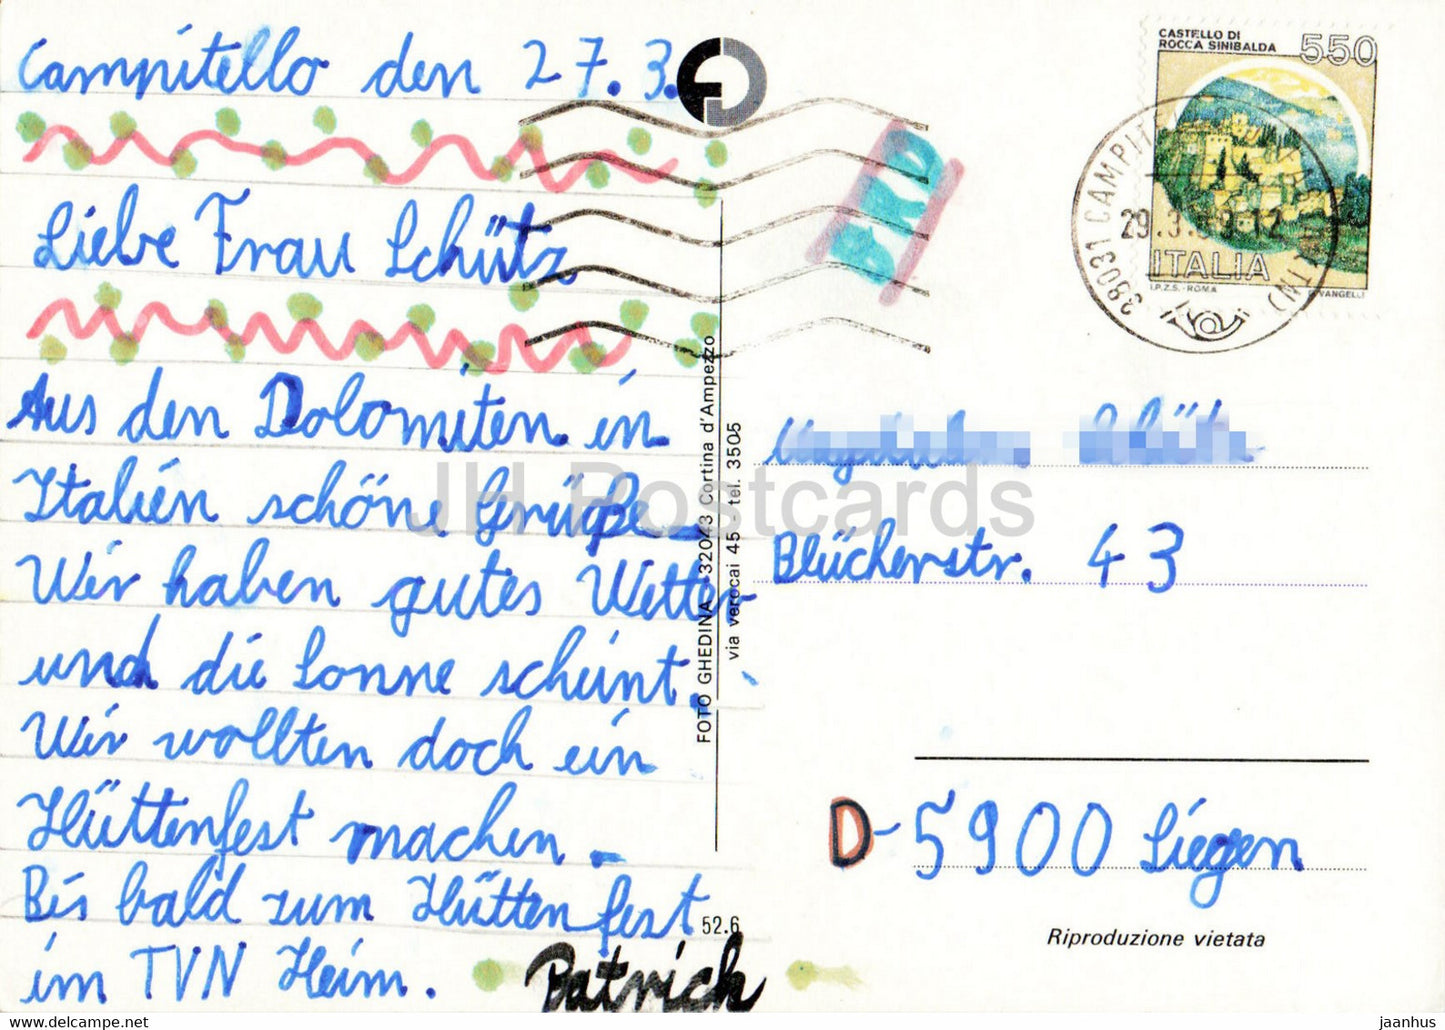 Campitello den 27.3.
Liebe Frau Schütz
Aus den Dolomiten in
Italien schöne Grüße.
Wir haben gutes Wetter
und die Sonne scheint.
Wir wollten doch ein
Hüttenfest machen.
Bis bald zum Hüttenfest
im TVN Heim.
Patrich
52.6
FOTO GHEDINA 32043 Cortina d'Ampezzo
via verocai 45 tel. 3505
CASTELLO DI
ROCCA SINIBALDA
550
ITALIA
I.P.Z.S.-ROMA
E. VANGELLI
38031 CAMPIT
29.3. 12
(TN)
Blücherstr. 43
D-5900 Siegen
Riproduzione vietata
JH Postcards
https://www.delcampe.net
jaanhus